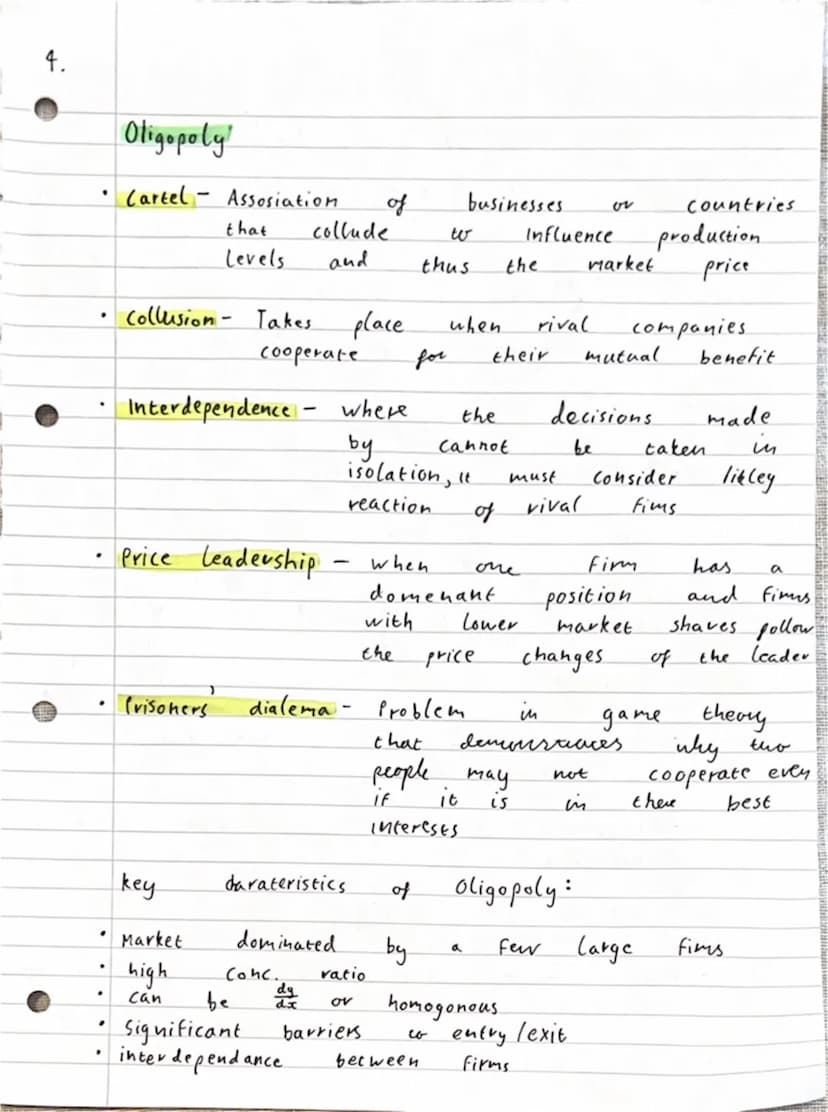 4.
Oligopoly
• Cartel – Assosiation of businesses or countries
that collude to influence production
levels and thus the market price
• Collusion – Takes place when rival companies
cooperate for their mutual benefit
• Interdependence – where the decisions made
by cannot be taken in
isolation, it must consider likley
reaction of rival fims
• Price leadership – when one firm has a
domenant position and firms
with lower market shares follow
the price changes of the leader
• Prisoners' dialema – Problem in game theory
that demonstrates why two
people may not cooperate even
if it is in there best
interests
key charateristics of Oligopoly:
• Market dominated by a few large firms
• high conc. ratio
• can be dy/dx or homogonous
• Significant barriers to entry/exit
• interdependance between firms